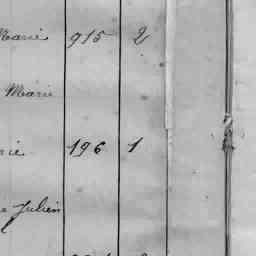 Marie 915 2
Marie
rie 196 1
Julien